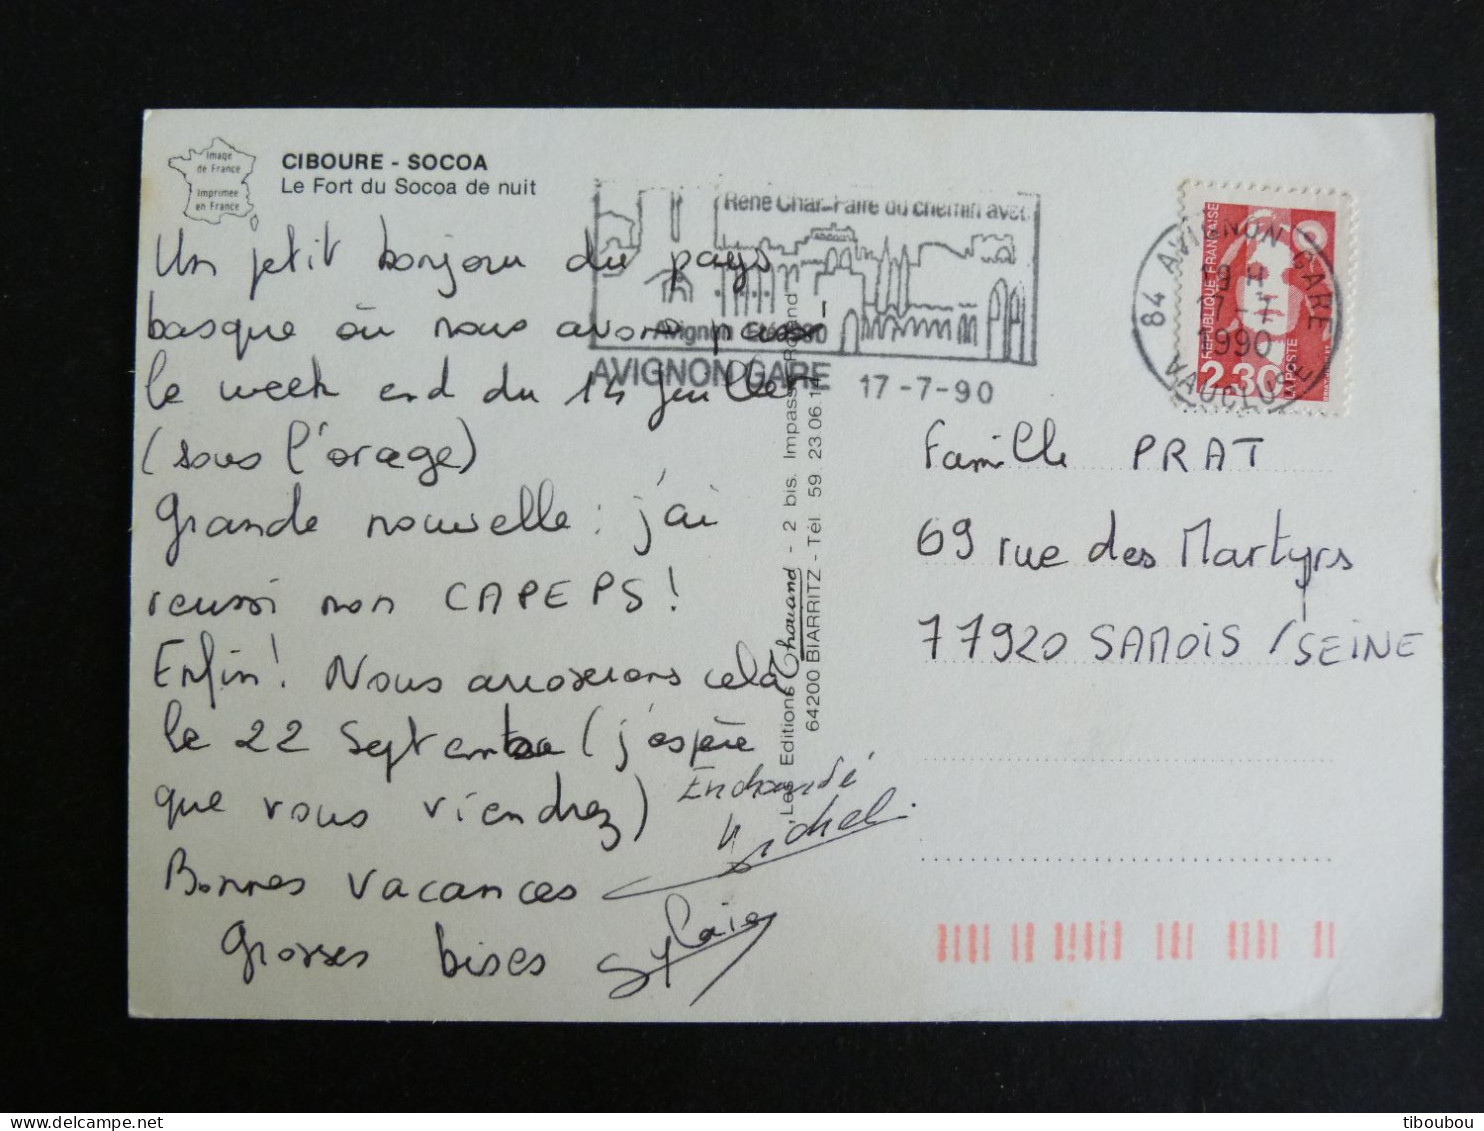 Image
de France
Imprimée
en France
CIBOURE - SOCOA
Le Fort du Socoa de nuit
Un petit bonjour du pays
basque où nous avons passé
le week end du 14 juillet
(sous l'orage)
Grande nouvelle : j'ai
reussi mon CAPEPS !
Enfin ! Nous arroserons cela
le 22 Septembre (j'espère
que vous viendrez)
Bonnes vacances
Grosses bises
Enchanté
Michel
Sylvie
Les Editions Thouand - 2 bis. Impasse
64200 BIARRITZ - Tél 59. 23 06 1
René Char-Faire du chemin avec
Avignon Eté 1990
AVIGNON GARE 17 -7-90
84 AVIGNON GARE
19 H
17 - 7
1990
VAUCLUSE
REPUBLIQUE FRANÇAISE
2,30
LA POSTE
Famille PRAT
69 rue des Martyrs
77920 SAMOIS /SEINE
tiboubou